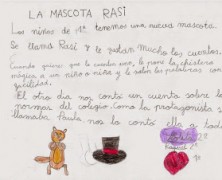 LA MASCOTA RASI
Los niños de 1º tenemos una nueva mascota.
Se llama Rasi y le gustan mucho los cuentos.
Cuando quiere que le cuenten uno, le pone la chistera
mágica a un niño o niña y le salen las palabras con
facilidad.
El otro día nos contó un cuento sobre las
normas del colegio. Como la protagonista se
llamaba Paula nos lo contó ella a todos